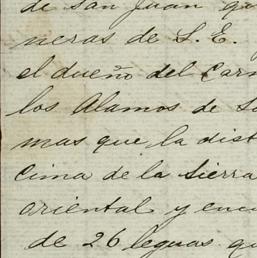 de San Juan qu
neras de S. E.
el dueño del Carm
los Alamos de Sa
mas que la dist
cima de la Sierra
oriental y encu
de 26 leguas qu